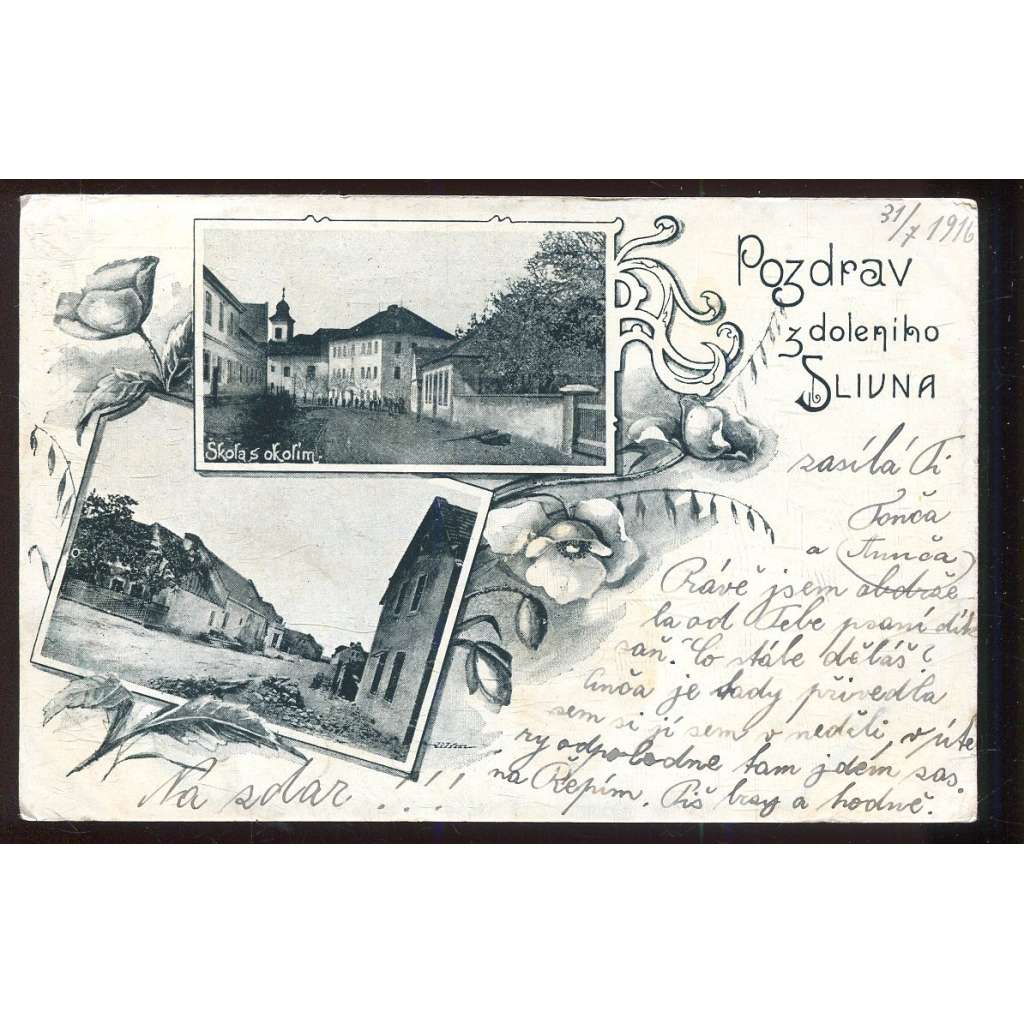 31/7 1916
Pozdrav
z doleniho
SLIVNA
Škola s okolím.
zasílá Ti
Tonča
a Anča
Právě jsem obdrže
la od Tebe psaní dík
zaň. Co stále děláš?
Anča je tady přivedla
sem si jí sem v neděli, v úte
rý odpoledne tam jdem zas.
na Řepím. Piš brzy a hodně.
Na zdar...!!!